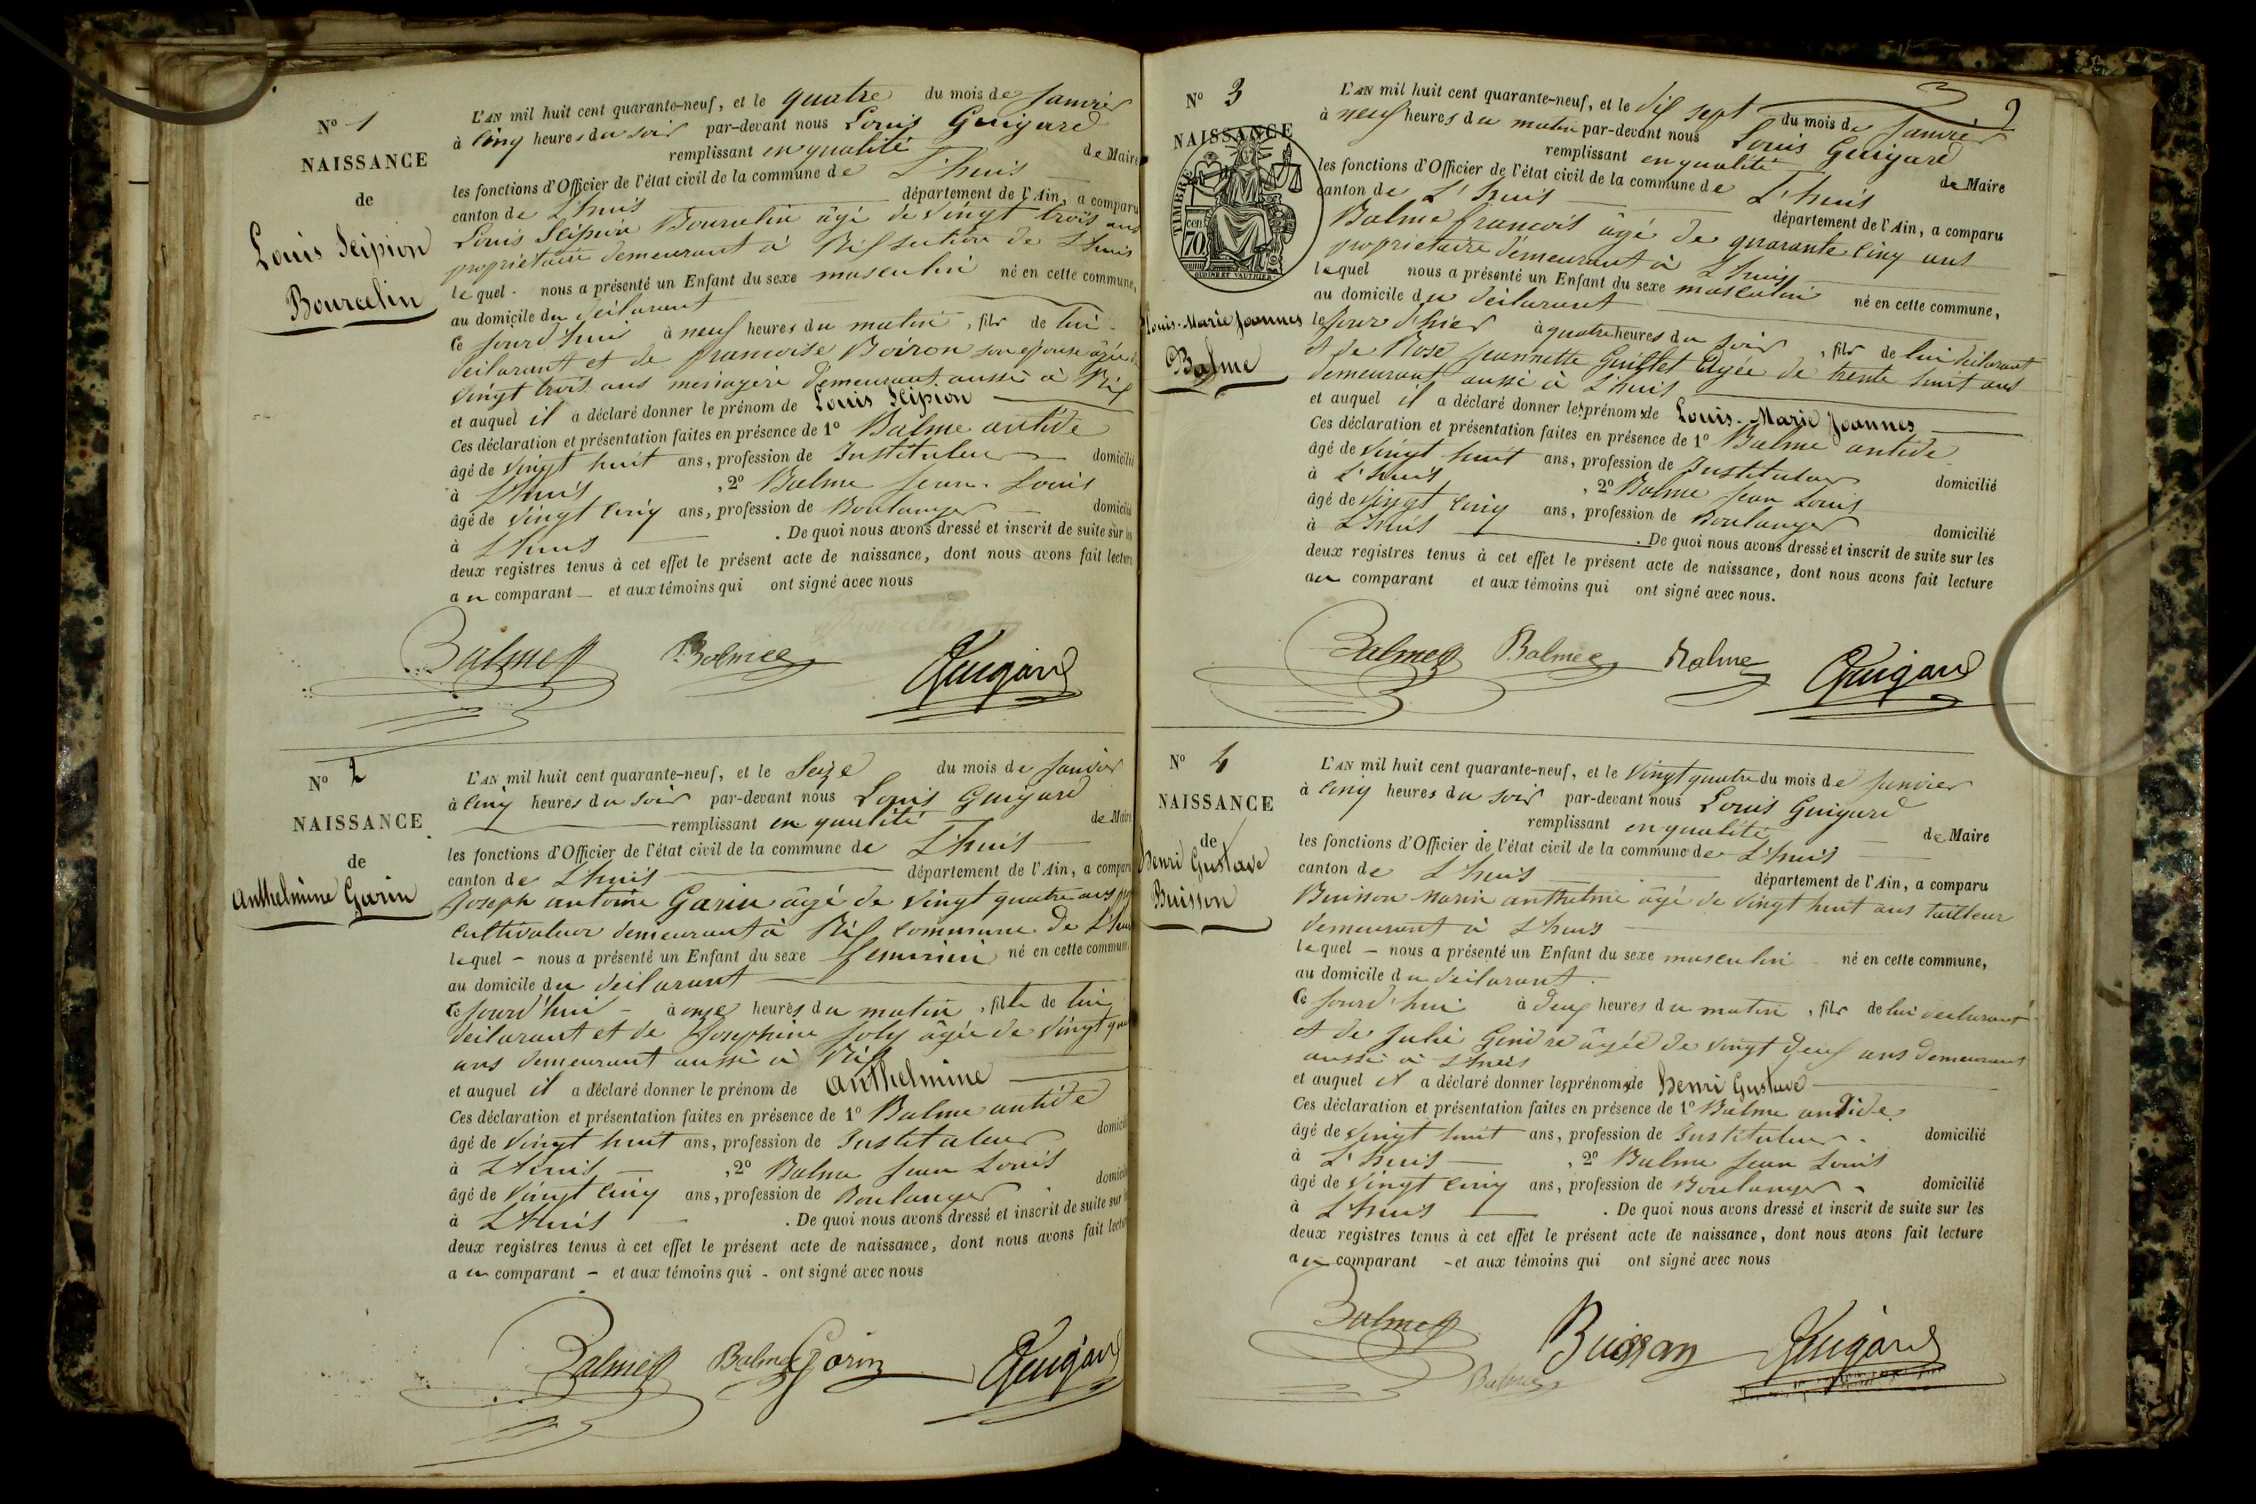 N° 1
NAISSANCE
de
Louis Scipion
Bourcelin
L'AN mil huit cent quarante-neuf, et le quatre du mois de Janvier
à cinq heures du soir par-devant nous Louis Guigard
remplissant en qualité de Maire
les fonctions d'Officier de l'état civil de la commune de L'huis
canton de L'huis département de l'Ain, a comparu
Louis Scipion Bourcelin âgé de vingt trois ans
propriétaire demeurant à Rix section de L'huis
lequel nous a présenté un Enfant du sexe masculin né en cette commune,
au domicile du déclarant
ce jourd'hui à neuf heures du matin, fils de lui
déclarant et de francoise Boiron son épouse âgée de
vingt trois ans ménagère demeurant aussi à Rix
et auquel il a déclaré donner le prénom de Louis Scipion
Ces déclaration et présentation faites en présence de 1° Balme antide
âgé de vingt huit ans, profession de Instituteur domicilié
à L'huis, 2° Balme Jean Louis
âgé de vingt cinq ans, profession de Boulanger domicilié
à L'huis. De quoi nous avons dressé et inscrit de suite sur les
deux registres tenus à cet effet le présent acte de naissance, dont nous avons fait lecture
au comparant et aux témoins qui ont signé avec nous
Balme Balme Guigard
N° 2
NAISSANCE
de
Anthelmine Garin
L'AN mil huit cent quarante-neuf, et le Seize du mois de Janvier
à cinq heures du soir par-devant nous Louis Guigard
remplissant en qualité de Maire
les fonctions d'Officier de l'état civil de la commune de L'huis
canton de L'huis département de l'Ain, a comparu
Joseph antoine Garin âgé de vingt quatre ans
cultivateur demeurant à Rix commune de L'huis
lequel nous a présenté un Enfant du sexe feminin né en cette commune,
au domicile du déclarant
ce jourd'hui à onze heures du matin, fille de lui
déclarant et de Josephine Joly âgée de vingt
ans demeurant aussi à Rix
et auquel il a déclaré donner le prénom de anthelmine
Ces déclaration et présentation faites en présence de 1° Balme antide
âgé de vingt huit ans, profession de Instituteur domicilié
à L'huis, 2° Balme Jean Louis
âgé de vingt cinq ans, profession de Boulanger domicilié
à L'huis. De quoi nous avons dressé et inscrit de suite sur
deux registres tenus à cet effet le présent acte de naissance, dont nous avons fait lecture
au comparant et aux témoins qui ont signé avec nous
Balme Balme Garin Guigard
3 2
N° 3
NAISSANCE
TIMBRE
70 cen
Louis-Marie Joannes
Balme
L'AN mil huit cent quarante-neuf, et le dix sept du mois de Janvier
à neuf heures du matin par-devant nous Louis Guigard
remplissant en qualité de Maire
les fonctions d'Officier de l'état civil de la commune de L'huis
canton de L'huis département de l'Ain, a comparu
Balme francois âgé de quarante cinq ans
propriétaire demeurant à L'huis
lequel nous a présenté un Enfant du sexe masculin né en cette commune,
au domicile du déclarant
le jour d'hier à quatre heures du soir, fils de lui déclarant
et de Rose Jeannette Guillet âgée de trente huit ans
demeurant aussi à L'huis
et auquel il a déclaré donner les prénoms de Louis-Marie Joannes
Ces déclaration et présentation faites en présence de 1° Balme antide
âgé de vingt huit ans, profession de Instituteur domicilié
à L'huis, 2° Balme Jean Louis
âgé de vingt cinq ans, profession de Boulanger domicilié
à L'huis. De quoi nous avons dressé et inscrit de suite sur les
deux registres tenus à cet effet le présent acte de naissance, dont nous avons fait lecture
au comparant et aux témoins qui ont signé avec nous.
Balme Balme Balme Guigard
N° 4
NAISSANCE
de
Henri Gustave
Buisson
L'AN mil huit cent quarante-neuf, et le vingt quatre du mois de Janvier
à cinq heures du soir par-devant nous Louis Guigard
remplissant en qualité de Maire
les fonctions d'Officier de l'état civil de la commune de L'huis
canton de L'huis département de l'Ain, a comparu
Buisson Marin anthelme âgé de vingt huit ans tailleur
demeurant à L'huis
lequel nous a présenté un Enfant du sexe masculin né en cette commune,
au domicile du déclarant.
Ce jourd'hui à deux heures du matin, fils de lui déclarant
et de Julie Gindre âgée de vingt deux ans demeurant
aussi à L'huis
et auquel il a déclaré donner les prénoms de Henri Gustave
Ces déclaration et présentation faites en présence de 1° Balme antide
âgé de vingt huit ans, profession de Instituteur domicilié
à L'huis, 2° Balme Jean Louis
âgé de vingt cinq ans, profession de Boulanger domicilié
à L'huis. De quoi nous avons dressé et inscrit de suite sur les
deux registres tenus à cet effet le présent acte de naissance, dont nous avons fait lecture
au comparant et aux témoins qui ont signé avec nous
Balme Balme Buisson Guigard